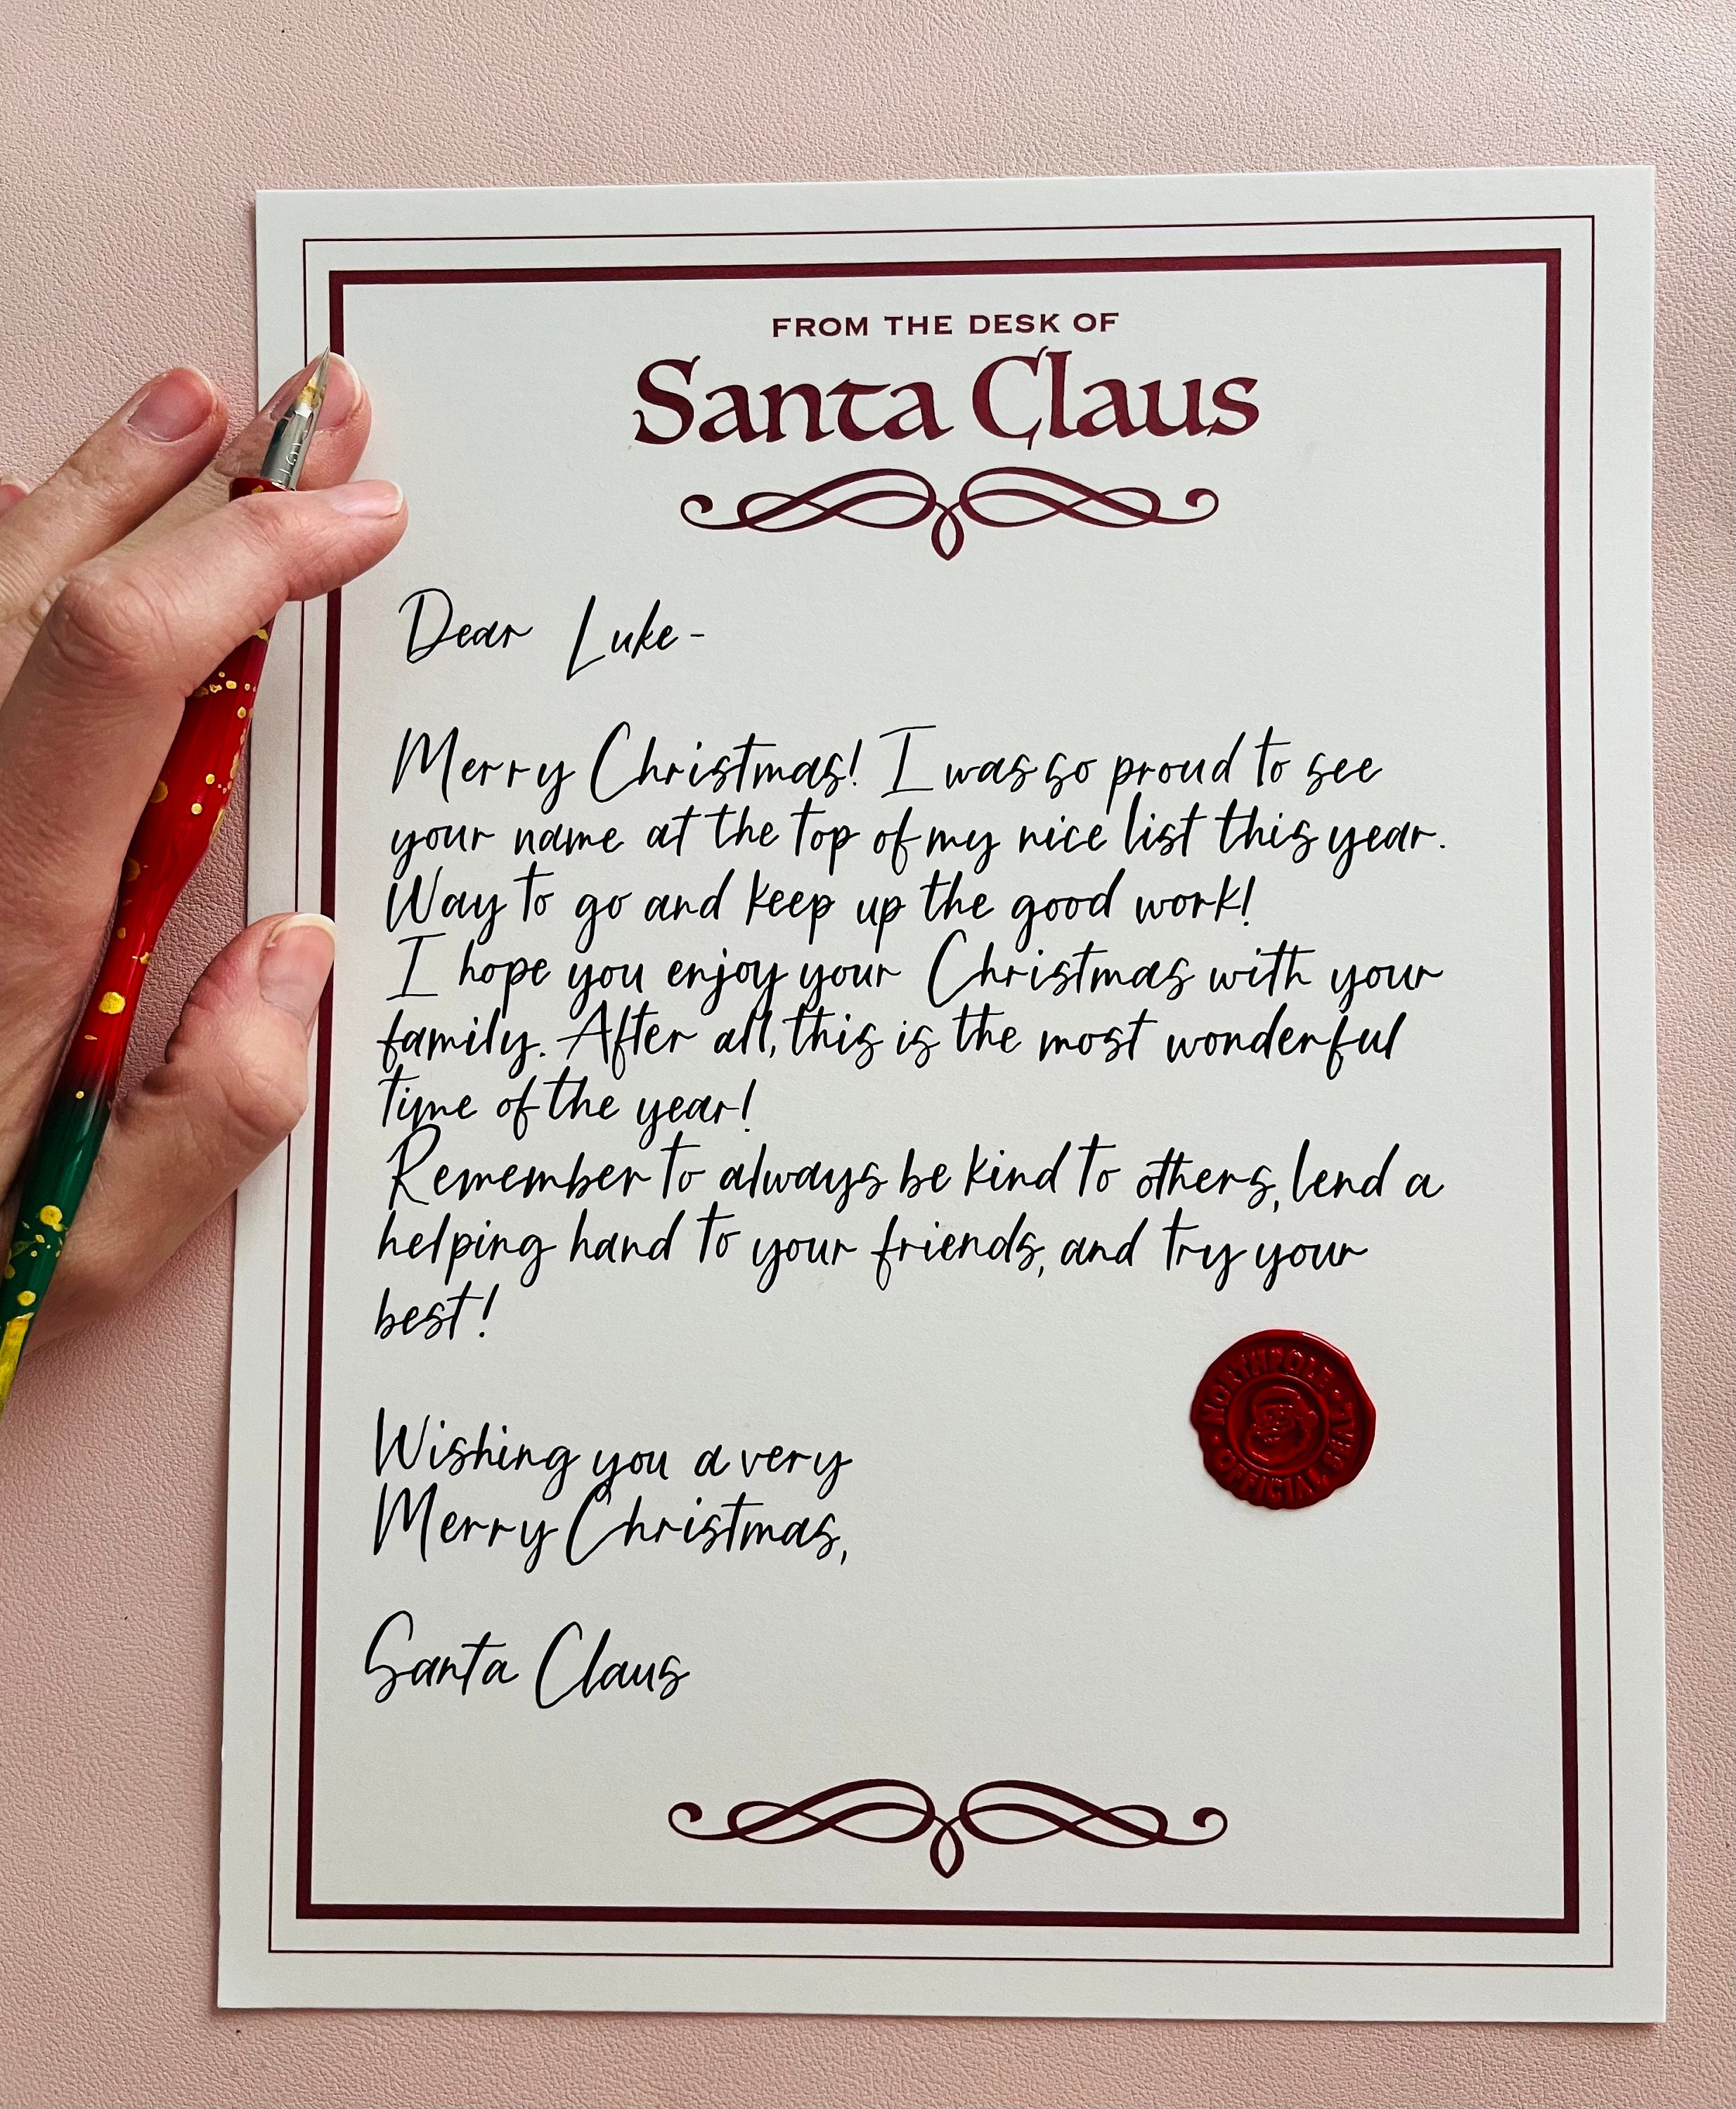 FROM THE DESK OF
Santa Claus
Dear Luke-
Merry Christmas! I was so proud to see
your name at the top of my nice list this year.
Way to go and keep up the good work!
I hope you enjoy your Christmas with your
family. After all, this is the most wonderful
time of the year!
Remember to always be kind to others, lend a
helping hand to your friends, and try your
best!
NORTH POLE · OFFICIAL SEAL ·
Wishing you a very
Merry Christmas,
Santa Claus